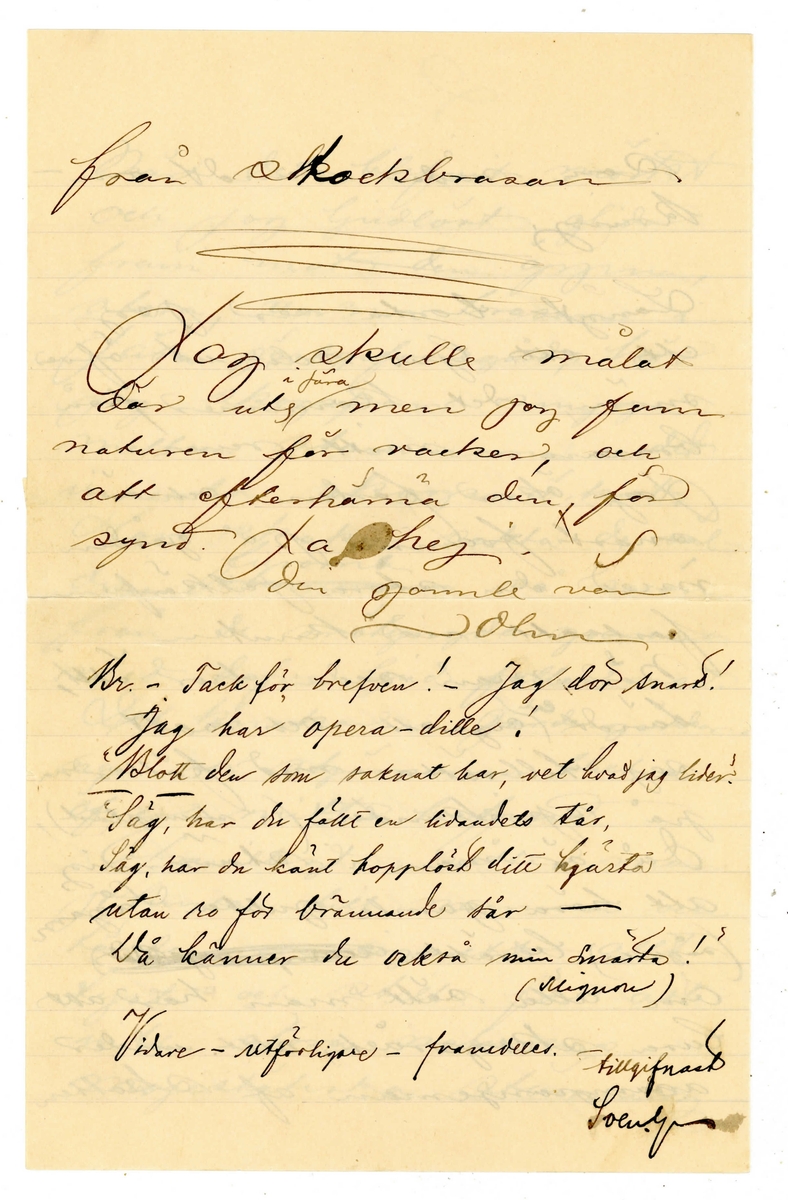 från stockbrasan.
Jag skulle målat
i föra
där ute men jag fann
naturen för vacker, och
att efterhärma den, för
synd. Ja hej.
din gamle vän
Ohm
Br. – Tack för brefven! – Jag dör snart!
Jag har opera-dille!
"Blott den som saknat har, vet hvad jag lider".
"Säg, har du fällt en lidandets tår,
Säg, har du känt hopplöst ditt hjärta
utan ro för brännande sår —
Då känner du också min smärta!"
(Mignon)
Vidare – utförligare – framdeles. –
tillgifnast
Sven